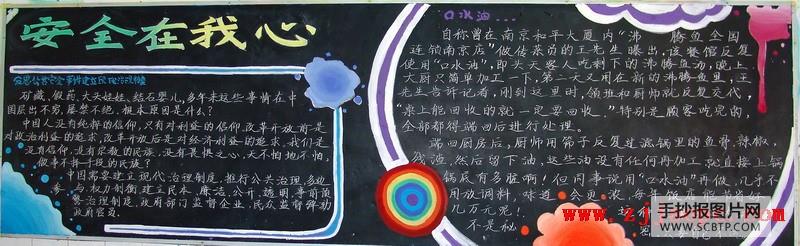 安全在我心
反思公共安全事件建立民主治政体制
矿藏、假药、大头娃娃、结石婴儿,多年来这些事情在中
国层出不穷,屡禁不绝,根本原因是什么?
中国人没有纯粹的信仰,只有对利益的信仰,改革开放前是
对政治利益的追求,改革开放后是对经济利益的追求,我们是
没有信仰,没有宗教的民族,没有畏惧之心,天不怕地不怕,
做事不择手段的民族?
中国需要建立现代治理制度,推行公共治理,多边
参与,权力制衡,建立民本、廉洁、公开、透明、事前预
警治理制度,政府部门监督企业,民众监督弹劾
政府官员。
口水油...
自称曾在南京和平大厦内“沸腾鱼全国
连锁南京店”做传菜员的王先生曝出,该餐馆反复
使用“口水油”,即头天客人吃剩下的沸腾鱼汤,晚上
大厨只简单加工一下,第二天又用在新的沸腾鱼里,王
先生告诉记者,刚到这里时,领班和厨师就反复交代,
“桌上能回收的就一定要回收。”特别是顾客吃完的,
全部都得端回后进行处理。
端回厨房后,厨师用筛子反复过滤锅里的鱼骨、辣椒、
残渣,然后留下油,这些油没有任何再加工就直接上锅
锅底有多脏啊!但同事说用“口水油”再做,几乎不
用放调料,味道
几万元呢!
不是秘
手抄报图片网
WWW.SCBTP.COM